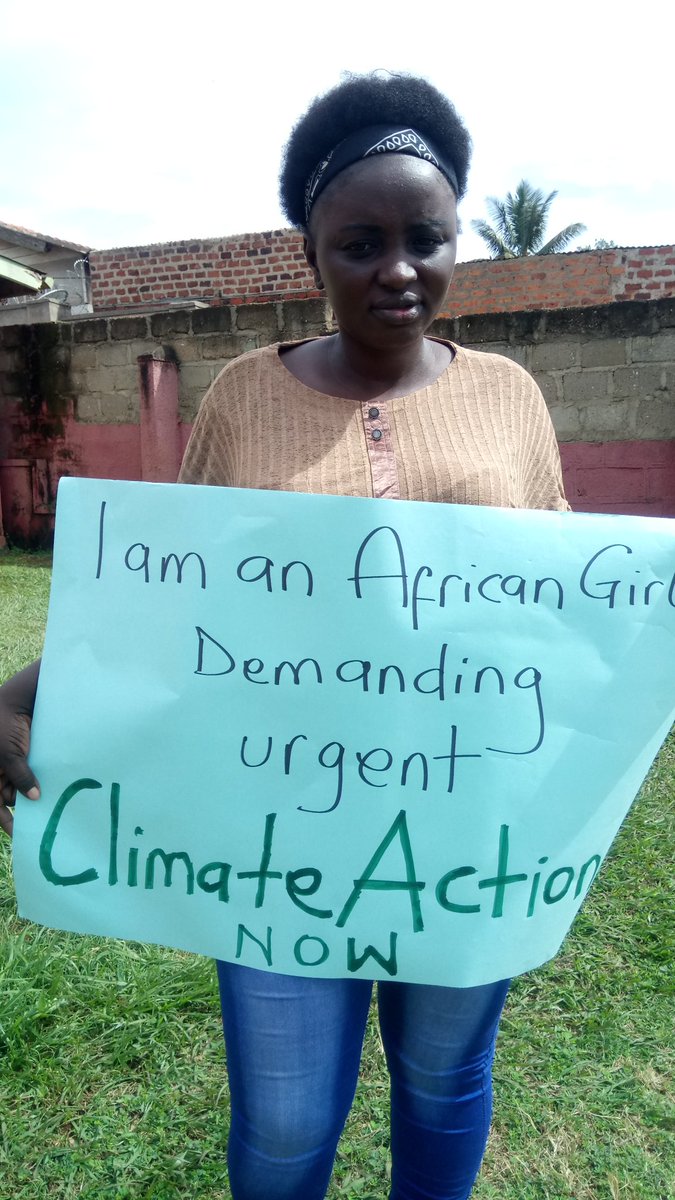 I am an African Girl
Demanding
urgent
Climate Action
NOW